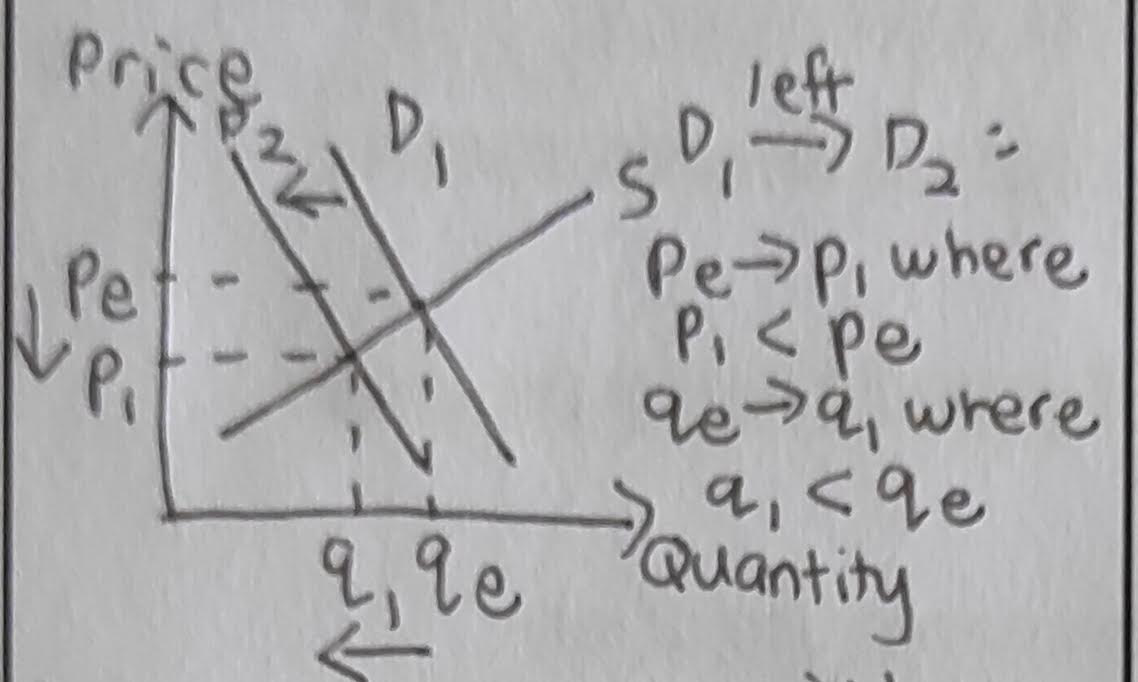 Price
D2
D1
S
Pe
P1
q1 qe
Quantity
D1 left→ D2 :
Pe→P1 where
P1 < Pe
qe→q1 where
q1 < qe